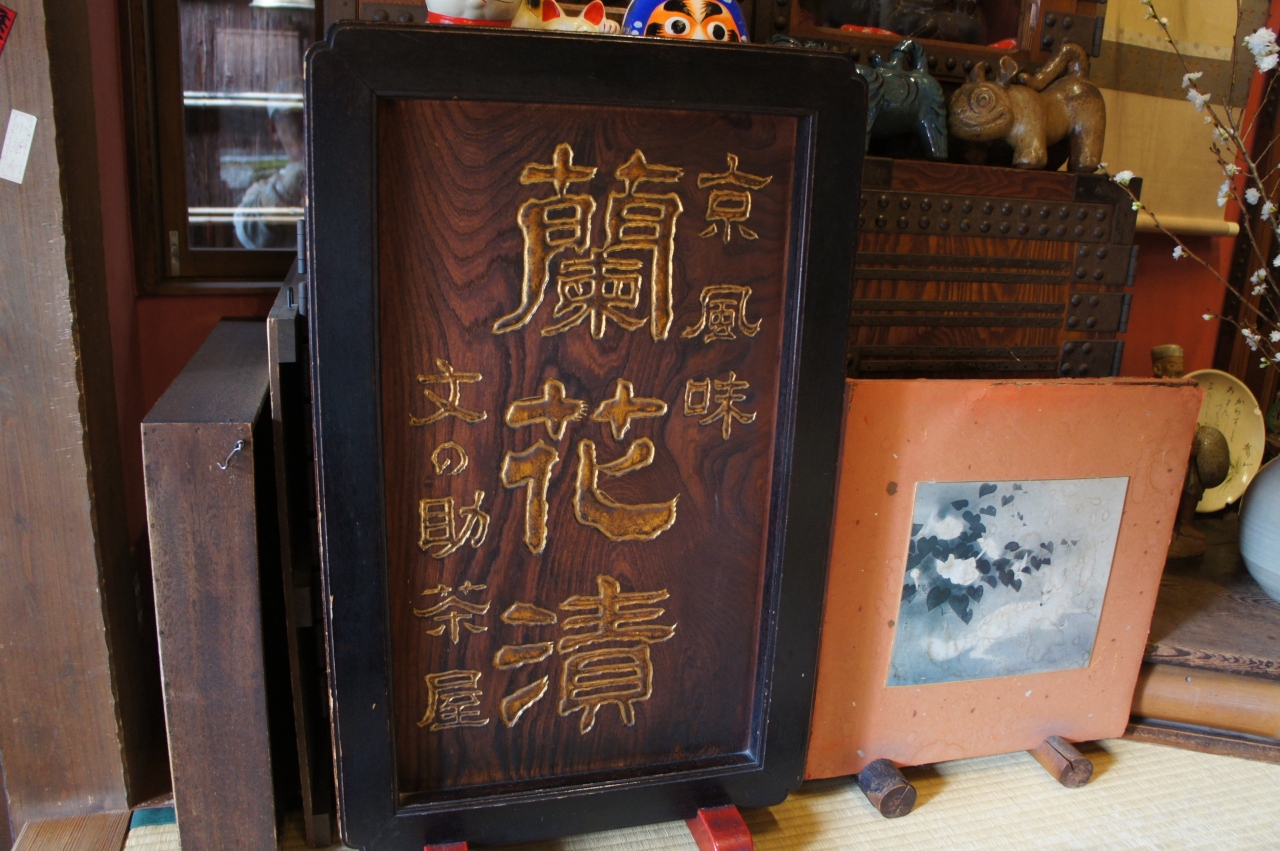 京風味
蘭花漬
文の助茶屋